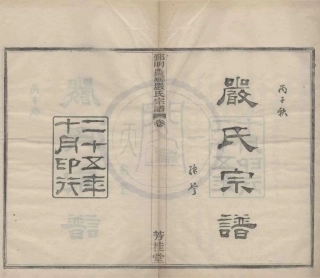 丙子秋
嚴氏宗譜
嚴氏宗譜
芳桂堂
二十五年
十月印行